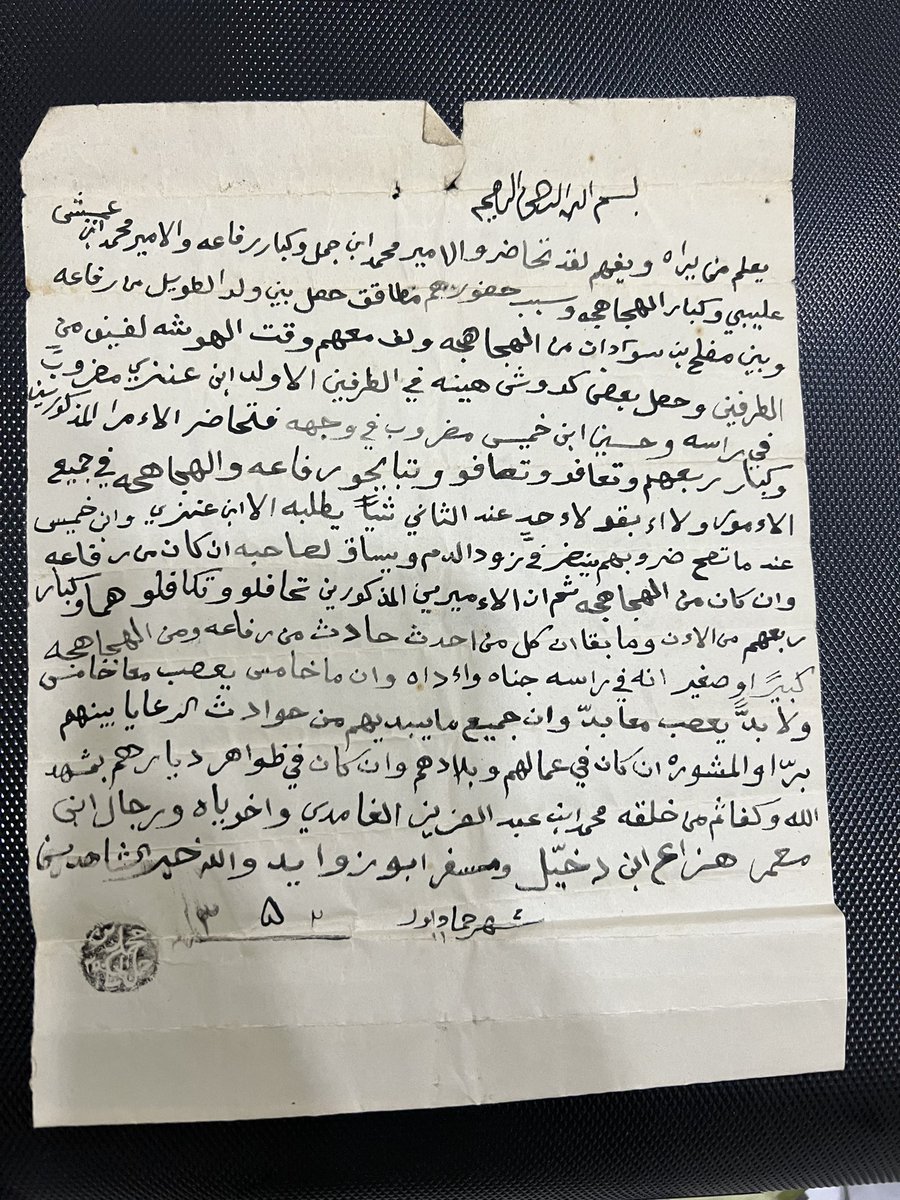 بسم الله الرحمن الرحيم
يعلم من يراه ويفهم لقد تحاضرو الامير محمد ابن جمل وكبار رفاعه والامير محمد ابن
عليبي وكبار الهجاهجه وسبب حضورهم مطاقق حصل بين ولد الطويل من رفاعه
وبين مفلح بن سوادان من الهجاهجه ولف معهم وقت الهوشه لفيف من
الطرفين وحصل بعض كدوش هينه في الطرفين الاولد ابن عنزي مضروب
في راسه وحسين ابن خميس مضروب في وجهه فتحاضر الاءمرا المذكورين
وكبار ربعهم وتعافو وتصافو رفاعه والهجاهجه في جميع
الاءمور ولاء بقو لاءحدٍ عند الثاني يطلبه الا ابن عنزي وابن خميس
عند ما تصح ضروبهم ينضر في زود الدم ويساق لصاحبه ان كان من رفاعه
وان كان من الهجاهجه ثم ان الاءميرين المذكورين تحافلو وتكافلو هما وكبار
ربعهم من الاءن وما بقا ان كل من احدث حادث من رفاعه ومن الهجاهجه
كبيرًا وصغير انه في راسه جناه واءداه وان ما خامس يعصب معا خامس
ولا بدٍّ يعصب معا بدّ وان جميع ما يبديهم من حوادث الرعايا بينهم
برّا والمشوره ان كان في عمالهم وبلادهم وان كان في ظواهر ديارهم بمشهد
الله وكفا ثم من خلقه محمد ابن عبد العزيز الغامدي واخوياه ورجال ابن
معمر هزاع ابن دخيّل ومسفر ابو زوايد والله خير الشاهدين
شهر جماد